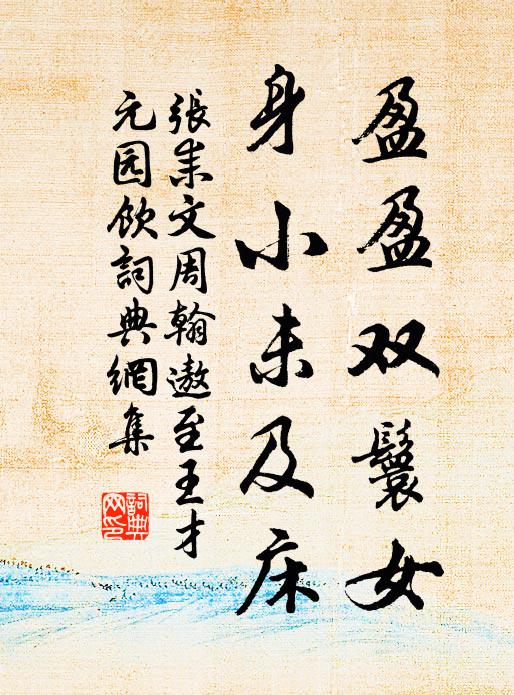 盈盈双鬟女
身小未及床
張耒文周翰邀至王才
元园飲詞典網集
詞典
网印